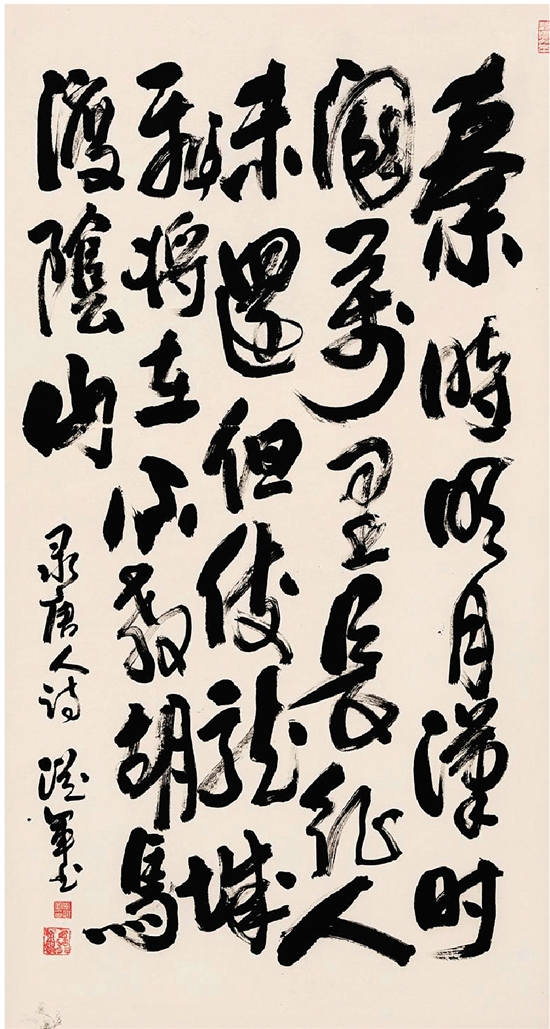 秦時明月漢时
關萬里長征人
未還但使龍城
飛將在不教胡馬
渡陰山
录唐人诗